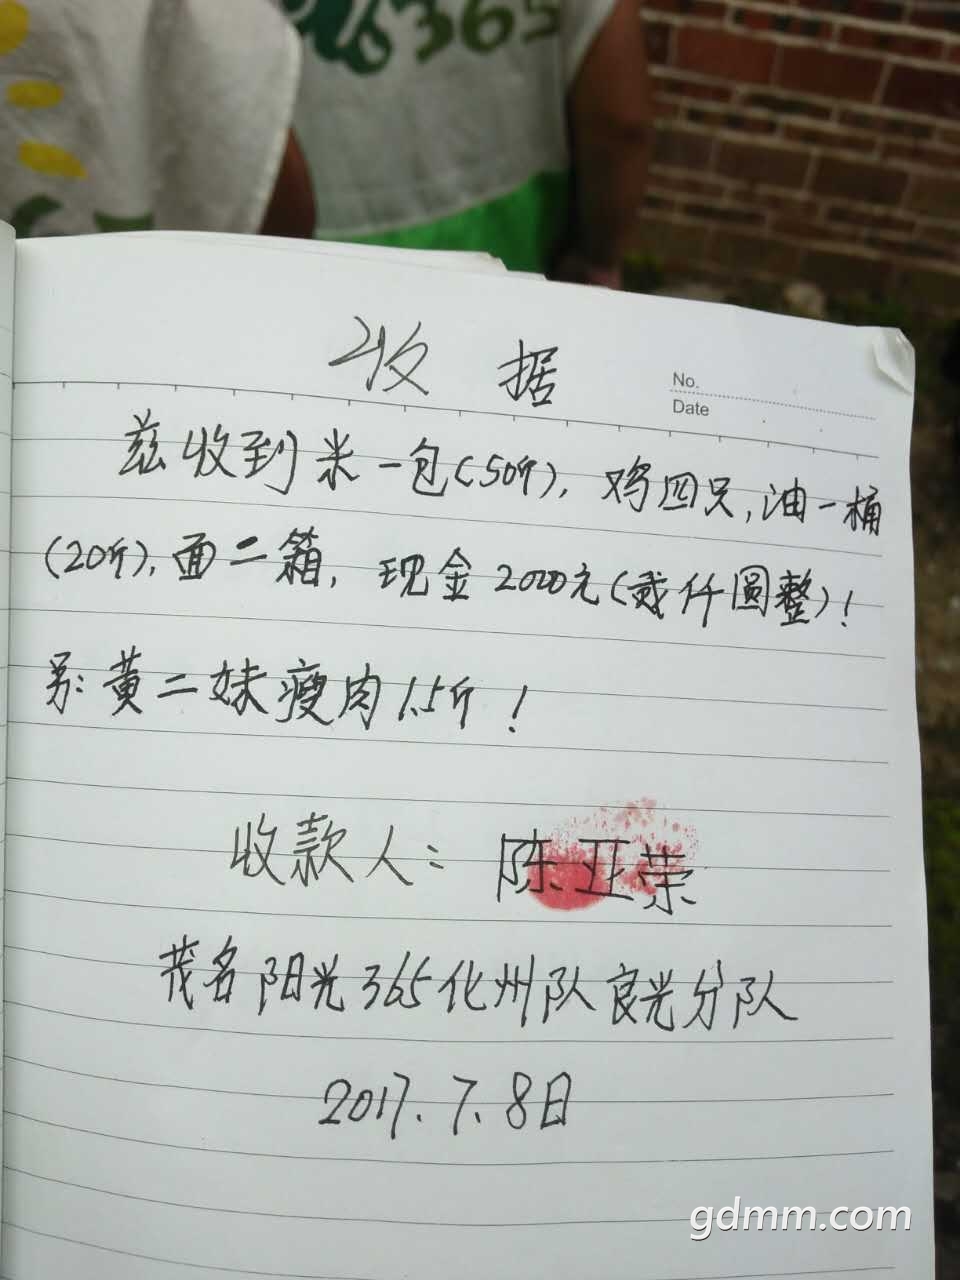 365
收据
No.
Date
兹收到米一包(50斤),鸡四只,油一桶
(20斤),面二箱,现金2000元(贰仟圆整)!
另:黄二妹瘦肉1.5斤!
收款人:陈亚荣
茂名阳光365化州队良光分队
2017.7.8日
gdmm.com